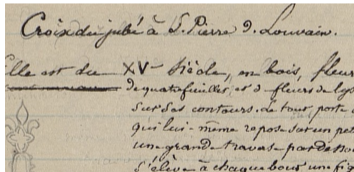 Croix du jubé à S. Pierre d. Louvain.
Elle est du XVe Siècle, en bois, fleur
de quatrefeuilles et d fleurs de lys
sur ses contours. Le tout porte
qui lui-même repose sur un
un grand travas par dessous
S'élève à chaque bout un fig